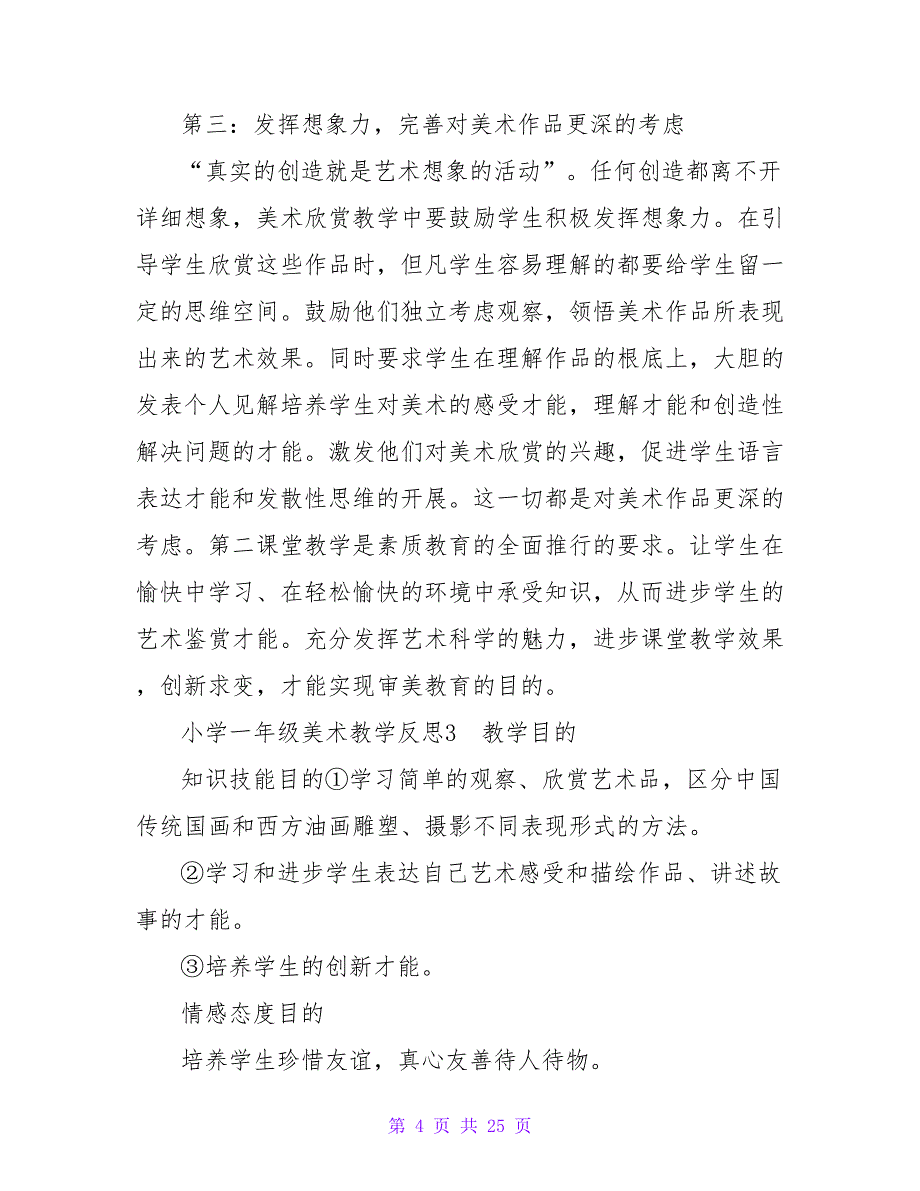 第三：发挥想象力，完善对美术作品更深的考虑
“真实的创造就是艺术想象的活动”。任何创造都离不开
详细想象，美术欣赏教学中要鼓励学生积极发挥想象力。在引
导学生欣赏这些作品时，但凡学生容易理解的都要给学生留一
定的思维空间。鼓励他们独立考虑观察，领悟美术作品所表现
出来的艺术效果。同时要求学生在理解作品的根底上，大胆的
发表个人见解培养学生对美术的感受才能，理解才能和创造性
解决问题的才能。激发他们对美术欣赏的兴趣，促进学生语言
表达才能和发散性思维的开展。这一切都是对美术作品更深的
考虑。第二课堂教学是素质教育的全面推行的要求。让学生在
愉快中学习、在轻松愉快的环境中承受知识，从而进步学生的
艺术鉴赏才能。充分发挥艺术科学的魅力，进步课堂教学效果
，创新求变，才能实现审美教育的目的。
小学一年级美术教学反思3　教学目的
知识技能目的①学习简单的观察、欣赏艺术品，区分中国
传统国画和西方油画雕塑、摄影不同表现形式的方法。
②学习和进步学生表达自己艺术感受和描绘作品、讲述故
事的才能。
③培养学生的创新才能。
情感态度目的
培养学生珍惜友谊，真心友善待人待物。
第 4 页 共 25 页